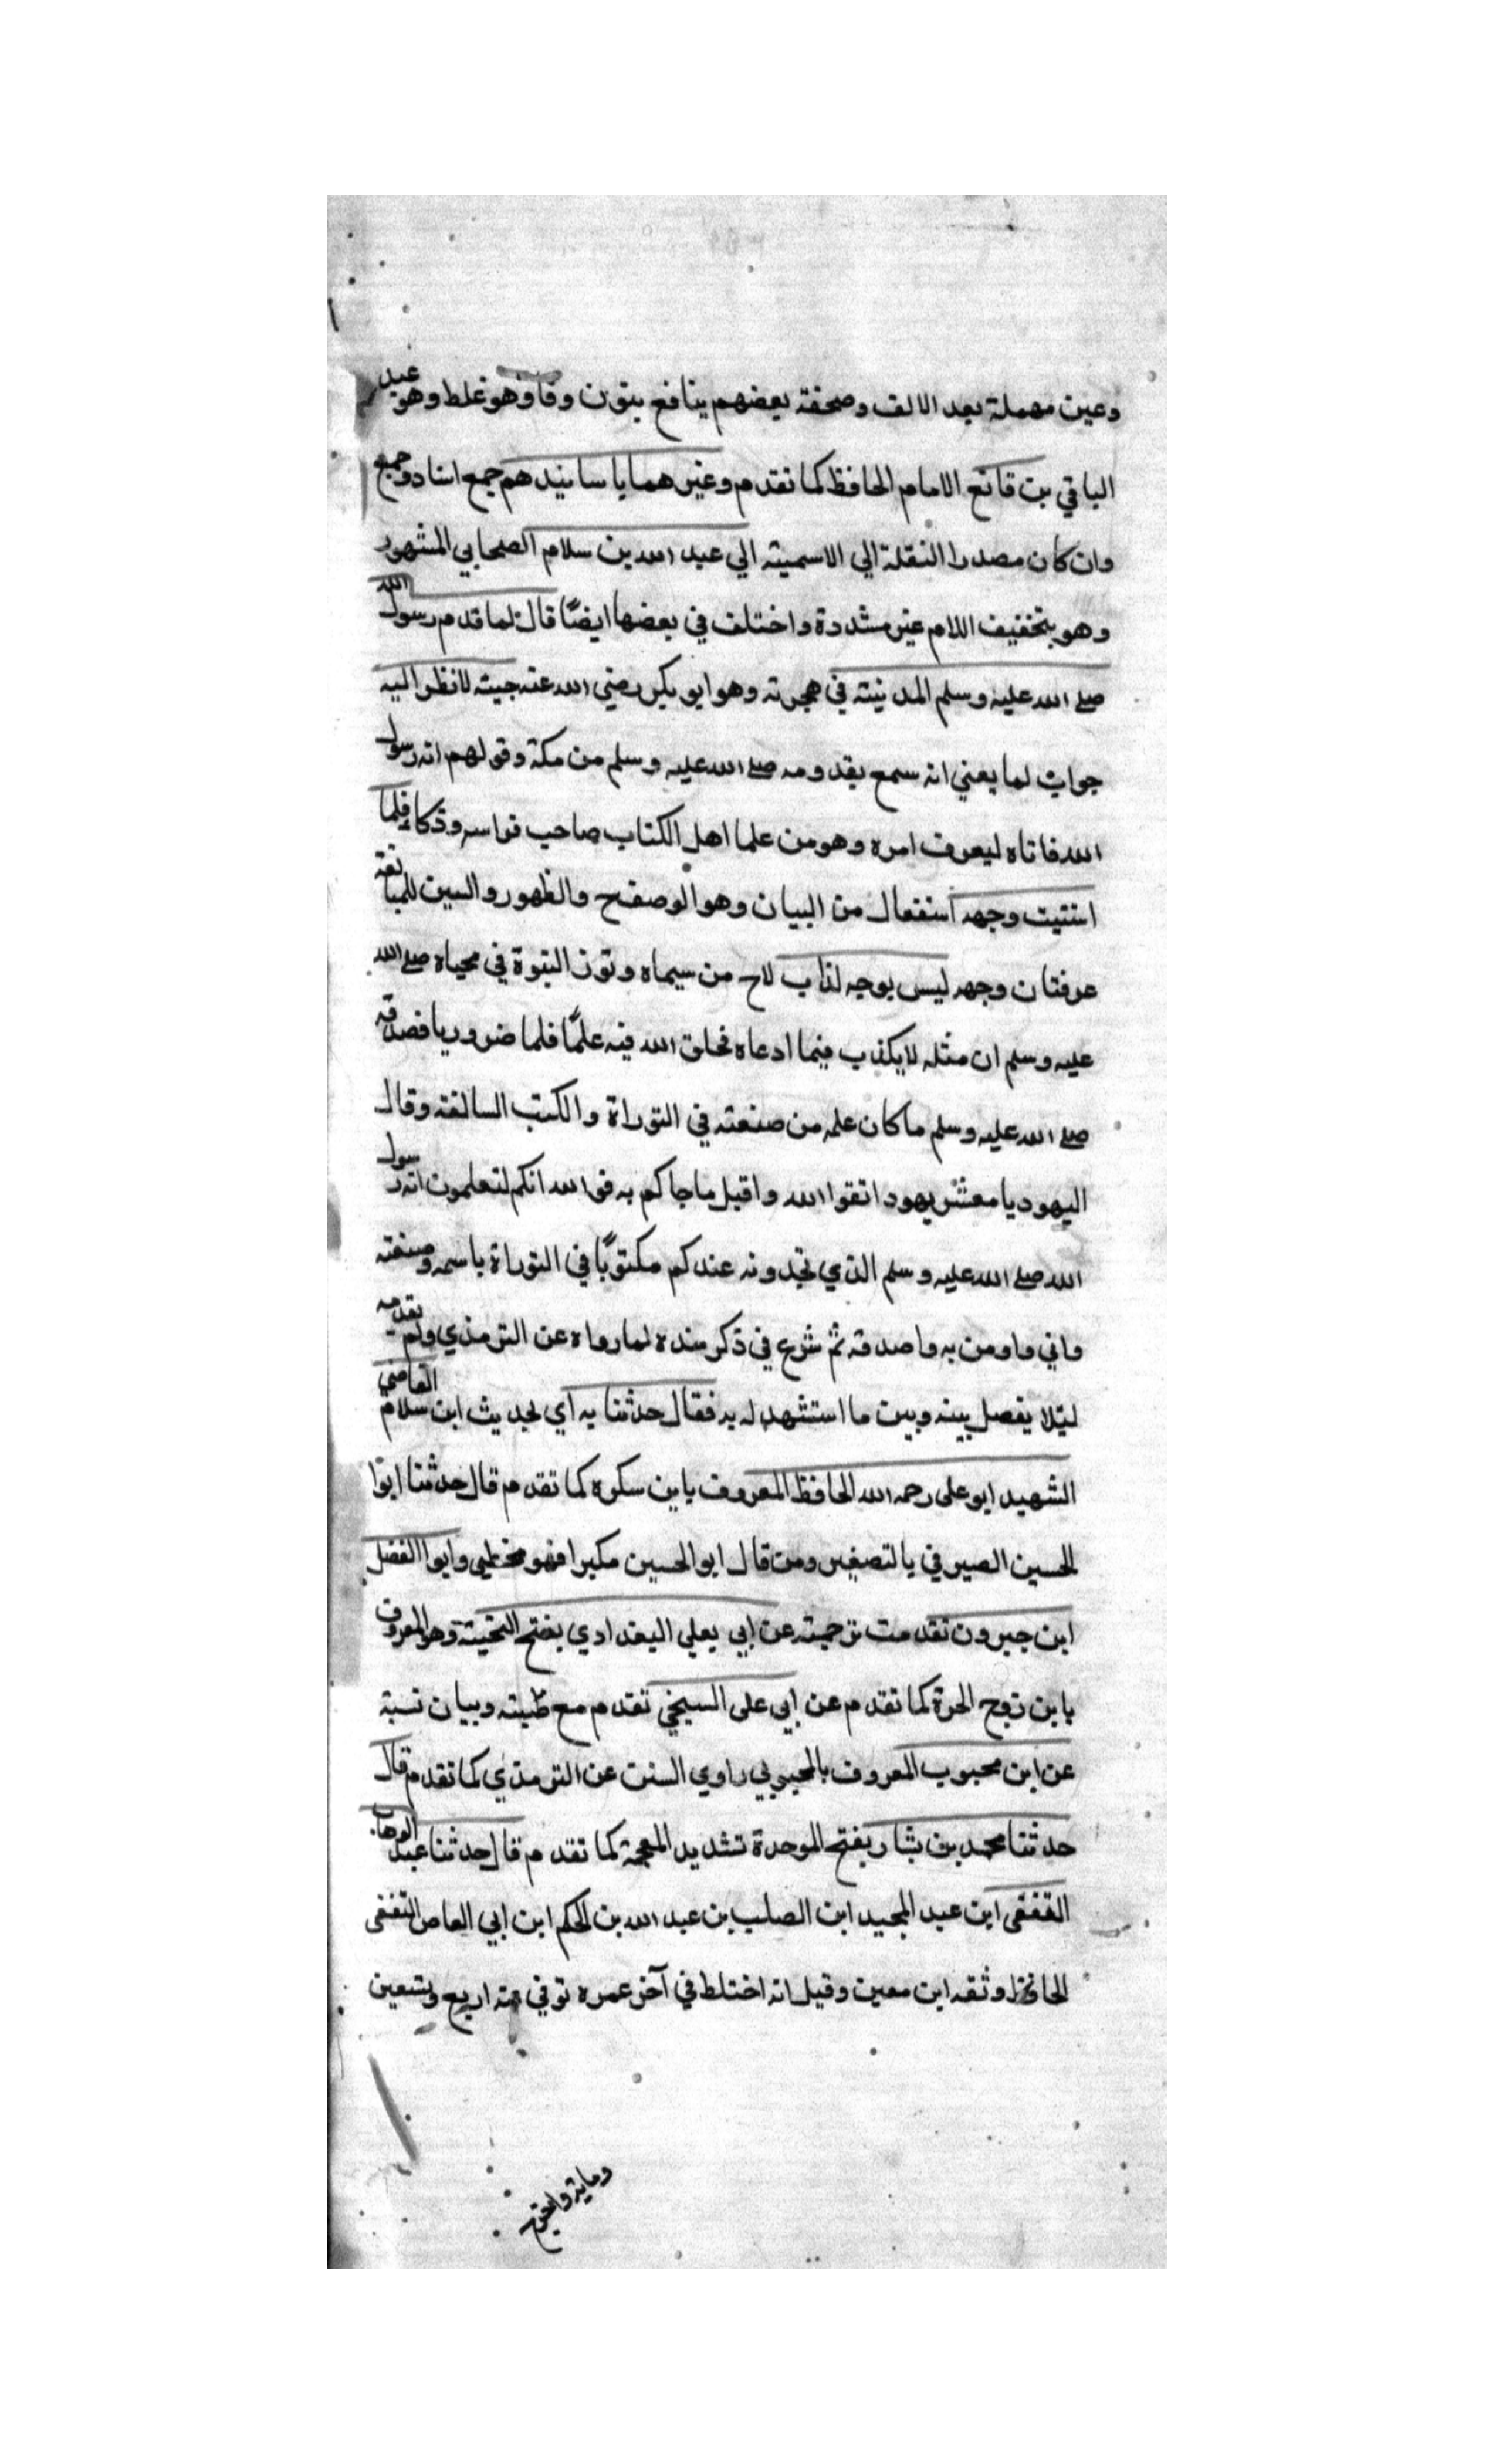 وعين مهملة بعد الالف وصحفته بعضهم بنافع بنون وفا وهو غلط وهو عبد
الباقي بن قانع الامام الحافظ كما تقدم وغيرهما باسانيدهم جمع اسناد وجمع
وان كان مصدرا لنقله الي الاسمية الي عبد الله بن سلام الصحابي المشهور
وهو بتخفيف اللام غير مشددة واختلف في بعضها ايضًا قال لما قدم رسول الله
صلي الله عليه وسلم المدينة في هجرته وهو ابو بكر رضي الله عنه جيته لانظر اليه
جواب لما يعني انه سمع بقدومه صلي الله عليه وسلم من مكة وقولهم انه رسول
الله فاتاه ليعرف امره وهو من علما اهل الكتاب صاحب فراسه وذكاء فلما
استبنت وجهه استفعال من البيان وهو الوضوح والظهور والسين للمبالغة
عرفت ان وجهه ليس بوجه كذاب لاح من سيماه ونور النبوة في محياه صلي الله
عليه وسلم ان مثله لا يكذب فيما ادعاه فخلق الله فيه علمًا فلما ضروريا فصدقه
صلي الله عليه وسلم ما كان علمه من صفته في التوراة والكتب السالفة وقال
اليهود يا معشر يهود اتقوا الله واقبل ما جاكم به فوالله انكم لتعلمون انه رسول
الله صلي الله عليه وسلم الذي تجدونه عندكم مكتوبًا في التوراة باسمه وصفته
واني اومن به واصدقه ثم شرع في ذكر سنده لما رواه عن الترمذي ولم يقدمه
ليلا يفصل بينه وبين ما استشهد له به فقال حدثنا به اي لحديث ابن سلام القاضي
الشهيد ابو علي رحمه الله الحافظ المعروف بابن سكره كما تقدم قال حدثنا ابوا
الحسين الصيرفي بالتصغير ومن قال ابو الحسين مكبرا فهو مخطي وابوا الفضل
ابن خيرون تقدمت ترجمته عن ابي يعلي البغدادي بفتح التحتية وهو المعروف
بابن زوج الحرة كما تقدم عن ابي علي السبخي تقدم مع ظبته وبيان نسبة
عن ابن محبوب المعروف بالمحبوبي راوي السنن عن الترمذي كما تقدم قال
حدثنا محمد بن بشار بفتح الموحدة تشديد المعجمة كما تقدم قال حدثنا عبد الوهاب
الثقفي ابن عبد المجيد ابن الصلب بن عبد الله بن الحكم ابن ابي العاص الثقفي
الحافظ وثقه ابن معين وقيل انه اختلط في آخر عمره توفي سنة اربع وتسعين
وماية واخرج